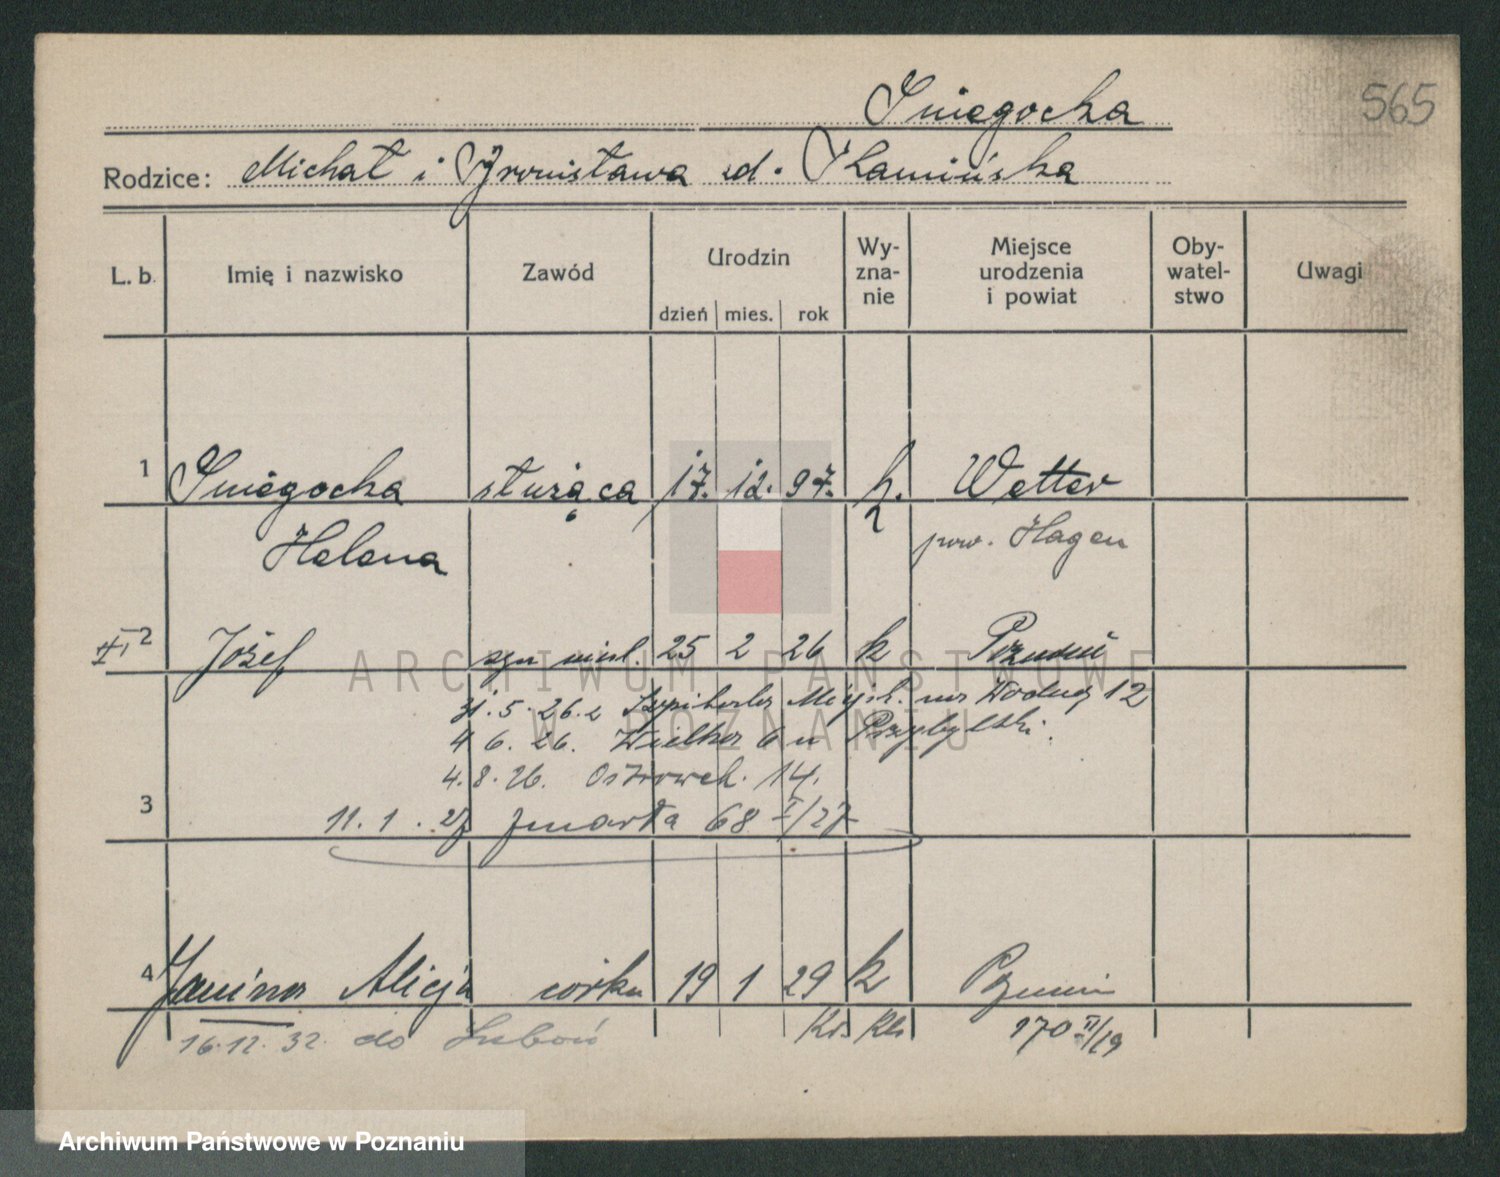 565
Śniegocka
Rodzice: Michał i Bronisława ud. Kamińska
L. b. Imię i nazwisko Zawód Urodzin dzień mies. rok Wy-zna-nie Miejsce urodzenia i powiat Oby-watel-stwo Uwagi
1 Śniegocka służąca 17. 12. 97. k. Wetter
Helena pow. Hagen
2 Józef syn 25 2 26 k Poznań
31.5.26 z Szpitala Miejsk. na Wodną 12
4 6. 26. Wielka 6 u Przybylski.
4.8.26. 14.
3 11.1.27 zmarła 68 I/27
4 Janina Alicja córka 19 1 29 k Poznań
16.12.32. do Luboń 170 II/19
ARCHIWUM PAŃSTWOWE
W POZNANIU
Archiwum Państwowe w Poznaniu